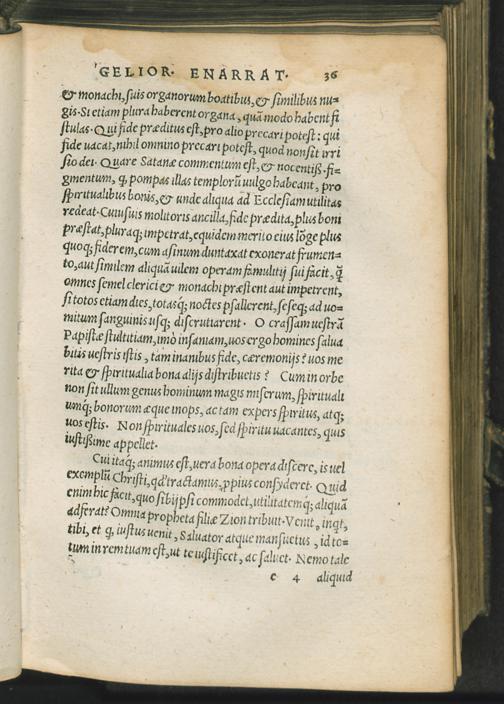 GELIOR· ENARRAT· 36
& monachi, suis organorum boatibus, & similibus nu=
gis· Si etiam plura haberent organa, quã modo habent fi
stulas· Qui fide præditus est, pro alio precari potest: qui
fide uacat, nihil omnino precari potest, quod non sit irri
sio dei· Quare Satanæ commentum est, & nocentiß· fi=
gmentum, q, pompas illas templorũ uulgo habeant, pro
spiritualibus bonis, & unde aliqua ad Ecclesiam utilitas
redeat· Cuiusuis molitoris ancilla, fide prædita, plus boni
præstat, pluraq; impetrat, equidem merito eius lõge plus
quoq; fiderem, cum asinum duntaxat exonerat frumen=
to, aut similem aliquã uilem operam famulitij sui facit, q̃
omnes semel clerici & monachi præstent aut impetrent,
si totos etiam dies, totasq; noctes psallerent, seseq; ad uo=
mitum sanguinis usq; discrutiarent· O crassam uestrã
Papistæ stultitiam, imò insaniam, uos ergo homines salua
bitis uestris istis, tam inanibus fide, cæremonijs? uos me
rita & spiritualia bona alijs distribuetis? Cum in orbe
non sit ullum genus hominum magis miserum, spirituali
umq; bonorum æque inops, ac tam expers spiritus, atq;
uos estis· Non spirituales uos, sed spiritu uacantes, quis
iustißime appellet·
Cui itaq; animus est, uera bona opera discere, is uel
exemplũ Christi, qd' tractamus, ꝓpius consyderet· Quid
enim hic facit, quo sibijpsi commodet, utilitatemq; aliquã
adferat? Omnia propheta filiæ Zion tribuit· Venit, inqt,
tibi, et q, iustus uenit, Saluator atque mansuetus, id to=
tum in rem tuam est, ut te iustificet, ac saluet· Nemo tale
e 4 aliquid